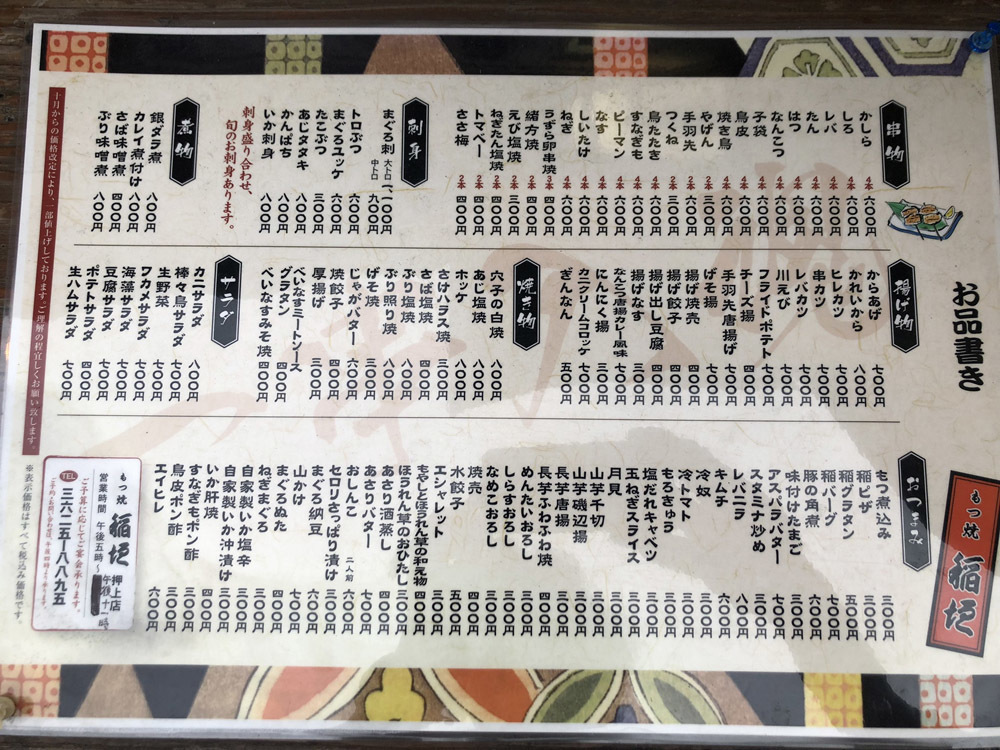 お品書き
もつ焼 稲垣
串物
かしら 4本 六〇〇円
しろ 4本 六〇〇円
レバ 4本 六〇〇円
たん 4本 六〇〇円
はつ 4本 六〇〇円
なんこつ 4本 六〇〇円
子袋 4本 六〇〇円
鳥皮 4本 六〇〇円
焼き鳥 4本 六〇〇円
やげん 2本 三〇〇円
手羽先 2本
つくね 2本 三〇〇円
鳥たたき 4本 六〇〇円
すなぎも 4本 六〇〇円
ピーマン 4本 六〇〇円
なす 4本 六〇〇円
しいたけ 4本 六〇〇円
ねぎ 4本 六〇〇円
うずら卵串焼 3本 四〇〇円
緒方焼 2本 四〇〇円
えび塩焼 2本 三〇〇円
ねぎたん塩焼 2本 四〇〇円
トマベー 2本 四〇〇円
ささ梅 2本 四〇〇円
刺身
まぐろ刺 大トロ 一、一〇〇円 中トロ 九〇〇円
トロぶつ 六〇〇円
まぐろユッケ 六〇〇円
たこぶつ 三〇〇円
あじタタキ 八〇〇円
かんぱち 八〇〇円
いか刺身 八〇〇円
刺身盛り合わせ、
旬のお刺身あります。
煮物
銀ダラ煮 八〇〇円
カレイ煮付け 八〇〇円
さば味噌煮 四〇〇円
ぶり味噌煮 八〇〇円
揚げ物
からあげ 七〇〇円
かれいから 八〇〇円
ヒレカツ 七〇〇円
串カツ 七〇〇円
レバカツ 七〇〇円
川えび 七〇〇円
フライドポテト 七〇〇円
チーズ揚 四〇〇円
手羽先唐揚げ 七〇〇円
げそ揚 七〇〇円
揚げ焼売 四〇〇円
揚げ餃子 四〇〇円
揚げ出し豆腐 四〇〇円
揚げなす 三〇〇円
なんこつ唐揚カレー風味 七〇〇円
にんにく揚 三〇〇円
カニクリームコロッケ 四〇〇円
ぎんなん 五〇〇円
焼き物
穴子の白焼 八〇〇円
あじ塩焼 八〇〇円
ホッケ 八〇〇円
さけハラス焼 三〇〇円
さば塩焼 四〇〇円
ぶり塩焼 八〇〇円
ぶり照り焼 八〇〇円
げそ焼 三〇〇円
じゃがバター 六〇〇円
焼餃子 三〇〇円
厚揚げ 三〇〇円
べいなすミートソース
グラタン 四〇〇円
べいなすみそ焼 四〇〇円
サラダ
カニサラダ 八〇〇円
棒々鳥サラダ 七〇〇円
生野菜 七〇〇円
ワカメサラダ 七〇〇円
海藻サラダ 七〇〇円
豆腐サラダ 七〇〇円
ポテトサラダ 四〇〇円
生ハムサラダ 七〇〇円
おつまみ
もつ煮込み 三〇〇円
稲ピザ 三〇〇円
稲グラタン 五〇〇円
稲バーグ 七〇〇円
豚の角煮 六〇〇円
味付けたまご
アスパラバター 七〇〇円
スタミナ炒め
レバニラ
キムチ
冷奴
冷トマト
もろきゅう
塩だれキャベツ 三〇〇円
玉ねぎスライス 三〇〇円
月見 三〇〇円
山芋千切
山芋磯辺揚 四〇〇円
長芋唐揚
長芋ふわふわ焼 七〇〇円
めんたいおろし 三〇〇円
しらすおろし 三〇〇円
なめこおろし 三〇〇円
焼売 四〇〇円
水餃子 五〇〇円
エシャレット
もやしとほうれん草の和え物
ほうれん草のおひたし 三〇〇円
あさり酒蒸し 四〇〇円
あさりバター 七〇〇円
おしんこ 二人前 六〇〇円
セロリさっぱり漬け 三〇〇円
まぐろ納豆 六〇〇円
山かけ 七〇〇円
まぐろぬた
ねぎまぐろ
自家製いか塩辛
自家製いか沖漬け 三〇〇円
いか肝焼 四〇〇円
すなぎもポン酢 三〇〇円
鳥皮ポン酢 三〇〇円
エイヒレ 六〇〇円
十月からの価格改定により、一部値上げしております。ご理解の程宜しくお願い致します。
※表示価格はすべて税込み価格です。
もつ焼 稲垣 押上店
営業時間 午後五時〜 午後十一時
ご予算に応じてご宴会承ります。
TEL 三六一五-八八九五